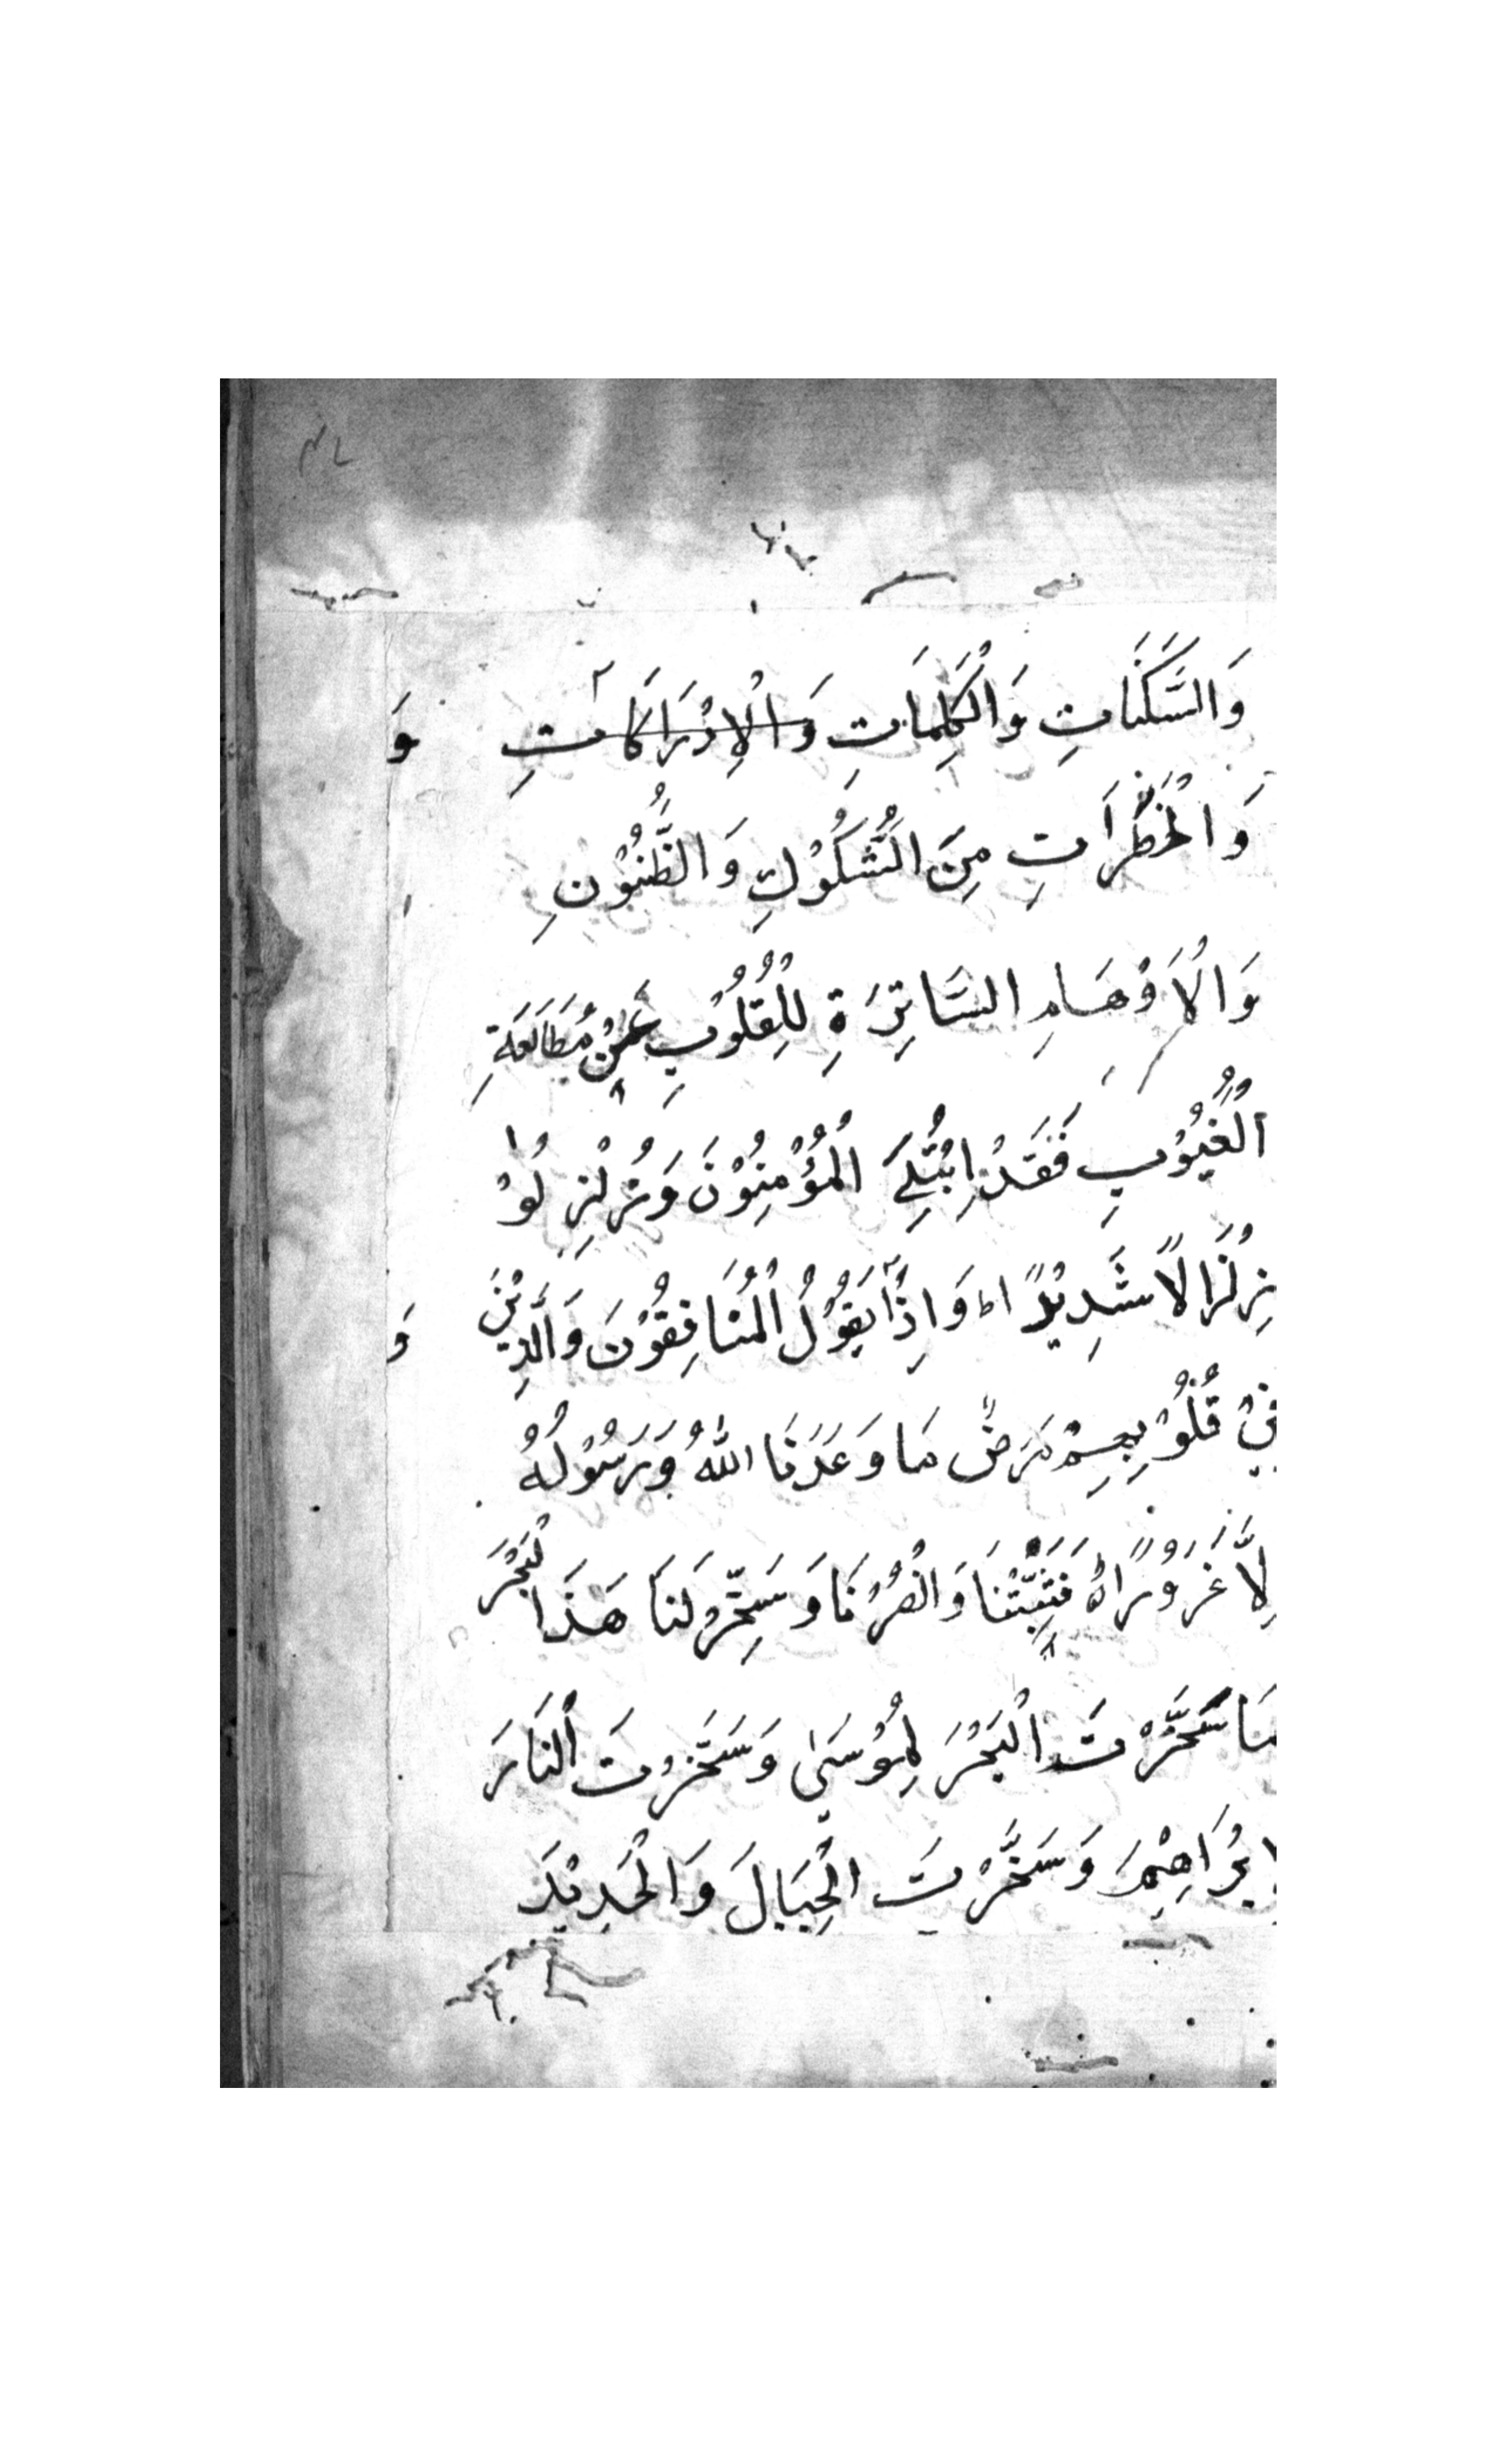 وَالسَّكَنَاتِ وَالْكَلِمَاتِ وَالْاِدْرَاكَاتِ وَ
وَالْخَطَرَاتِ مِنَ الشُّكُوْكِ وَالظُّنُوْنِ
وَالْاَوْهَامِ السَّاتِرَةِ لِلْقُلُوْبِ عَنْ مُطَالَعَةِ
الْغُيُوْبِ فَقَدْ اِبْتُلِيَ الْمُؤْمِنُوْنَ وَزُلْزِلُوْا
زِلْزَالًا شَدِيْدًا وَاِذْ يَقُوْلُ الْمُنَافِقُوْنَ وَالَّذِيْنَ وَ
فِيْ قُلُوْبِهِمْ مَرَضٌ مَا وَعَدَنَا اللّٰهُ وَرَسُوْلُهُ
لِاَّ غَرُوْرًا فَثَبِّتْنَا وَانْصُرْنَا وَسَخِّرْ لَنَا هَذَا الْبَحْرَ
مَا سَخَّرْتَ الْبَحْرَ لِمُوْسَىٰ وَسَخَّرْتَ النَّارَ
اِبْرَاهِيْمَ وَسَخَّرْتَ الْجِبَالَ وَالْحَدِيْدَ